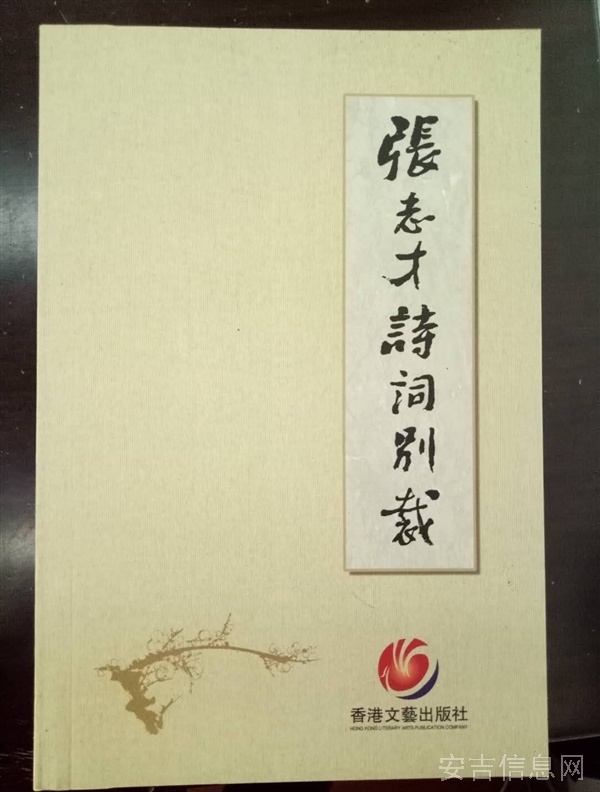 張志才詩詞別裁
香港文藝出版社
HONG KONG LITERARY ARTS PUBLICATION COMPANY
安吉信息网